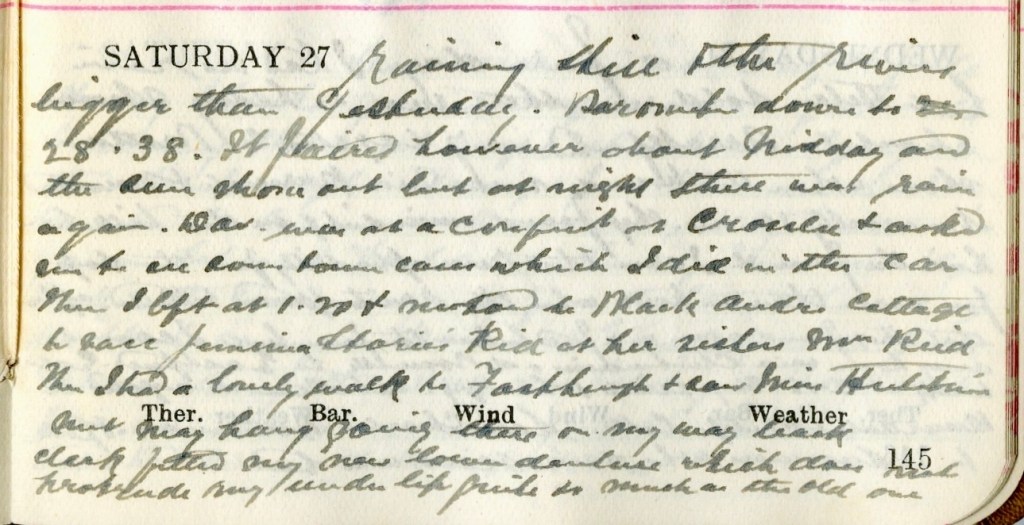 SATURDAY 27 raining still & the rivers
bigger than Yesterday. Barometer down to
28.38. It faired however about Midday and
the sun shone out but at night there was rain
again. Dav. was at a confint at & asked
me to see some town cases which I did in the car
Then I left at 1.20 & motored to Black Cottage
to Jemima Stories Kid at her sisters Mrs Reid
Then I had a lovely walk to & saw Miss
Ther. Bar. Wind Weather
met May going there on my way back
Clark fitted my new lower denture which does not
145
protrude my under lip quite so much as the old one